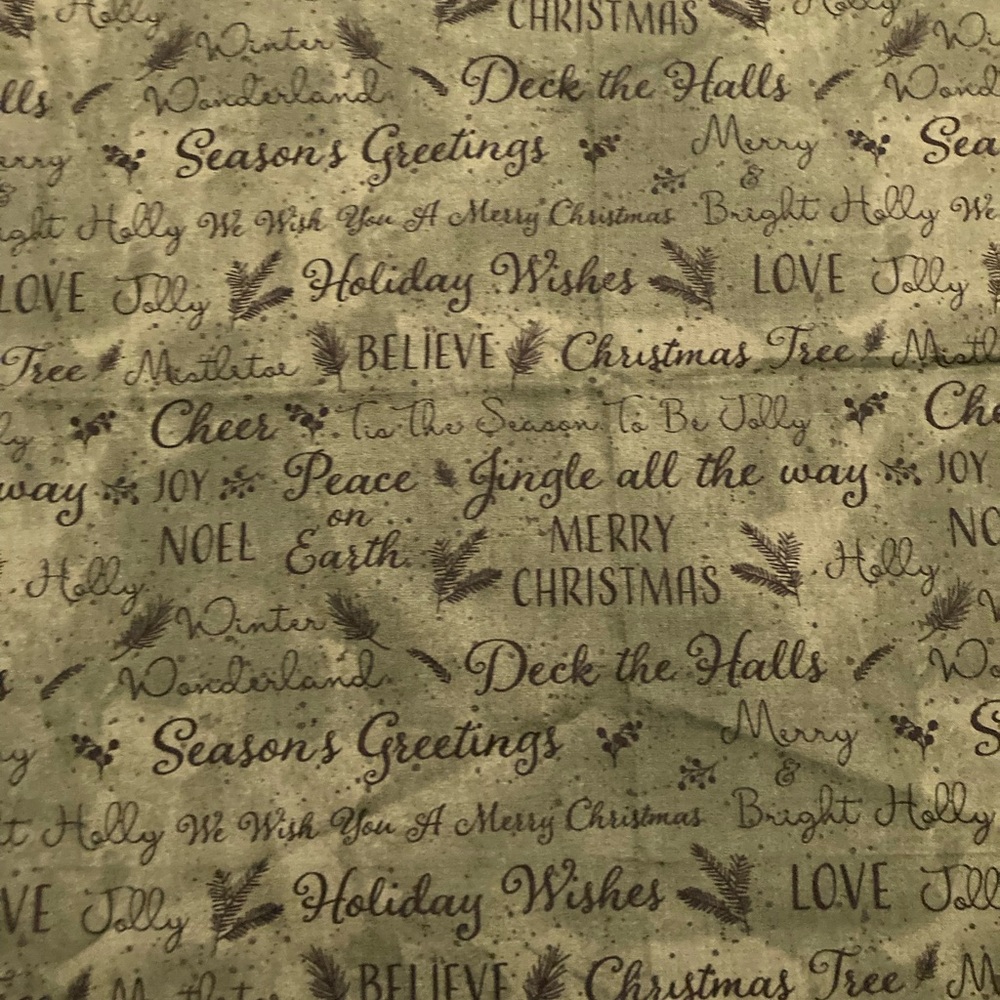 Holly CHRISTMAS Holly
Winter
lls Wonderland Deck the Halls Wond
erry Season's Greetings Merry Sea
& &
ight Holly We Wish You A Merry Christmas Bright Holly We
LOVE Jolly Holiday Wishes LOVE Jolly
Tree Mistletoe BELIEVE Christmas Tree Mistl
ly Cheer Tis The Season To Be Jolly Che
way JOY Peace Jingle all the way JOY
NOEL on MERRY NO
Holly Earth CHRISTMAS Holly
Winter W
s Wonderland Deck the Halls Wo
y Season's Greetings Merry S
&
t Holly We Wish You A Merry Christmas Bright Holly
VE Jolly Holiday Wishes LOVE Joll
Mistletoe BELIEVE Christmas Tree M